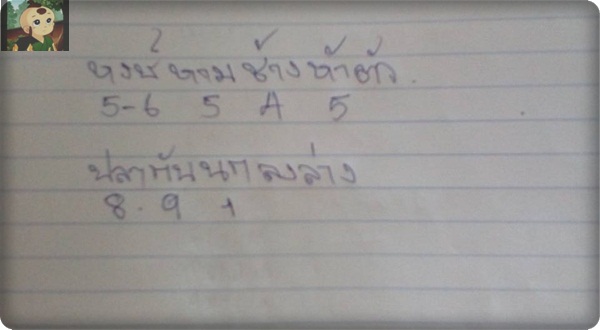 หงษ์หามช้างห้าตัว.
5-6 5 4 5
ปลากับนกลงล่าง
8. 9 1